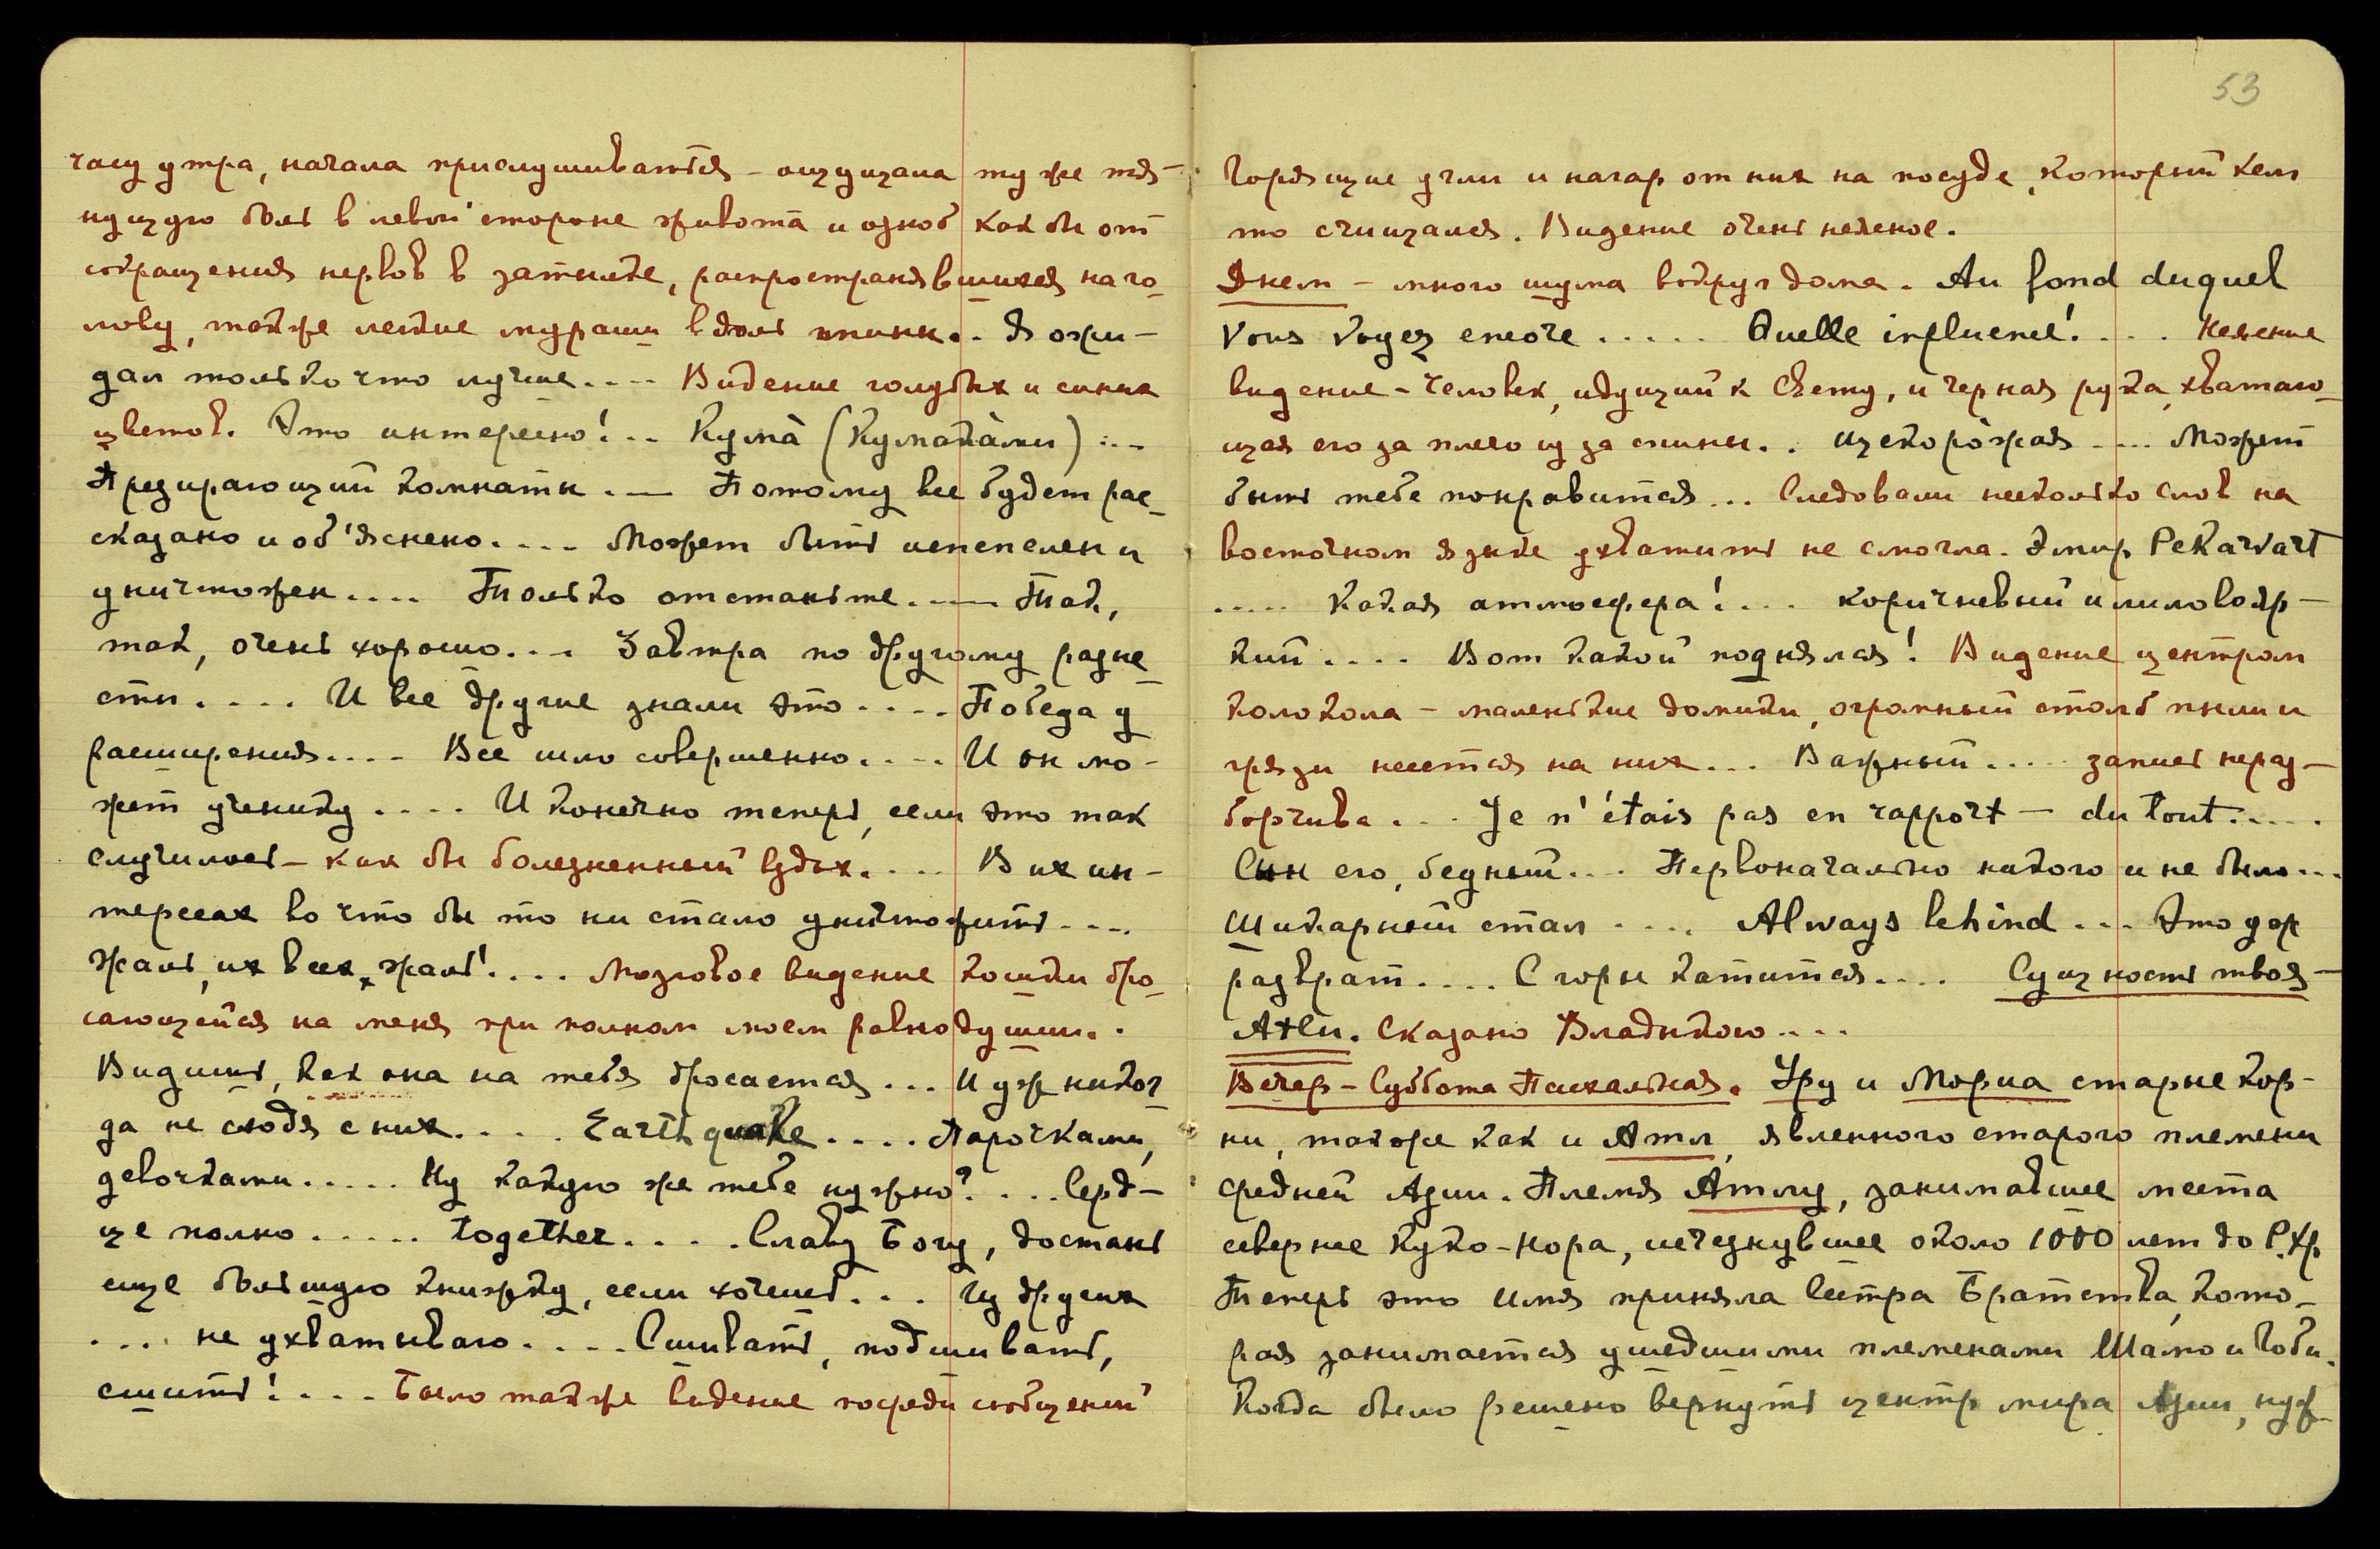 часу утра, начала прислушиваться – ощущала ту же тя-
нущую боль в левой стороне живота и озноб как бы от
сокращения нервов в затылке, распространявшихся на го-
лову, также легкие мураши вдоль спины.. Я ожи-
дал только что лучше.... Видение голубых и синих
цветов. Это интересно!.. Кумà (Кумакàми)...
Презирающий комнаты.... Потому все будет рас-
сказано и об'яснено.... Может быть испепелен и
уничтожен.... Только отстаньте.... Так,
так, очень хорошо.... Завтра по другому разне
сти.... И все другие знали это.... Победа у
расширения.... Все шло совершенно.... И он мо-
жет ученику.... И конечно теперь, если это так
случилось – как бы болезненный вздох.... В их ин-
тересах во что бы то ни стало уничтожить....
Жаль, их всех, жаль!.... Мозговое видение кошки бро-
сающейся на меня при полном моем равнодушии..
Видишь, как она на тебя бросается... И уж никог-
да не сходя с них.... Earthquake.... Парочками,
девочками..... Ну какую же тебе нужно?.... Серд-
це полно..... together.... Славу Богу, достань
еще большую книжку, если хочешь... Из других
.... не ухватываю.... Сшивать, подшивать,
сшить!.... Было также видение посреди сообщений
53
Горящие угли и нагар от них на посуде, который кем
то счищался. Видение очень неясное.
Днем – много шума вокруг дома. Au fond duquel
vous voyez encore ..... Quelle influence!.... Неясное
видение – человек, идущий к Свету, и черная рука, хватаю-
щая его за плечо из за спины.. Ицскорóжая.... Может
быть тебе понравится... Следовали несколько слов на
восточном языке ухватить не смогла. Эмир Рекаrvart
..... Какая атмосфера!... коричневый и лиловояр-
кий.... Вот какой поднялся! Видение центром
колокола – маленькие домики, огромный столб пыли и
грязи несется на них... Важный.... запись нераз-
борчива.... Je n'étais pas en rapport – du tout.....
Сын его, бедный.... Первоначально никого и не было...
Шикарный стал .... Always behind ... Это уж
разврат.... С горы катится.... Сущность твоя –
Атлу. Сказано Владыкою....
Вечер – Суббота Пасхальная. Уру и Мориа старые кор-
ни, также как и Атл, явленного старого племени
средней Азии. Племя Атлу, занимавшее места
севернее Куко-Нора, исчезнувшее около 1000 лет до Р.Хр.
Теперь это имя приняла Сестра Братства, кото-
рая занимается ушедшими племенами Шамо и Гоби.
Когда было решено вернуть центр мира Азии, нуж-